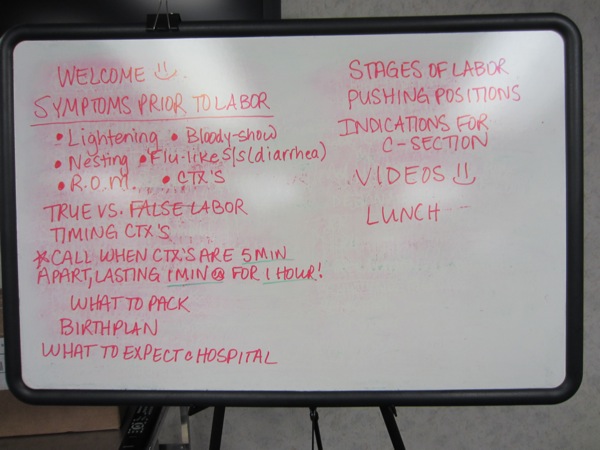 WELCOME
SYMPTOMS PRIOR TO LABOR
• Lightening • Bloody-show
• Nesting • Flu-like S/S (diarrhea)
• R.O.M. • CTX'S
TRUE VS. FALSE LABOR
TIMING CTX'S
*CALL WHEN CTX'S ARE 5 MIN
APART, LASTING 1 MIN FOR 1 HOUR!
WHAT TO PACK
BIRTHPLAN
WHAT TO EXPECT HOSPITAL
STAGES OF LABOR
PUSHING POSITIONS
INDICATIONS FOR
C-SECTION
VIDEOS
LUNCH